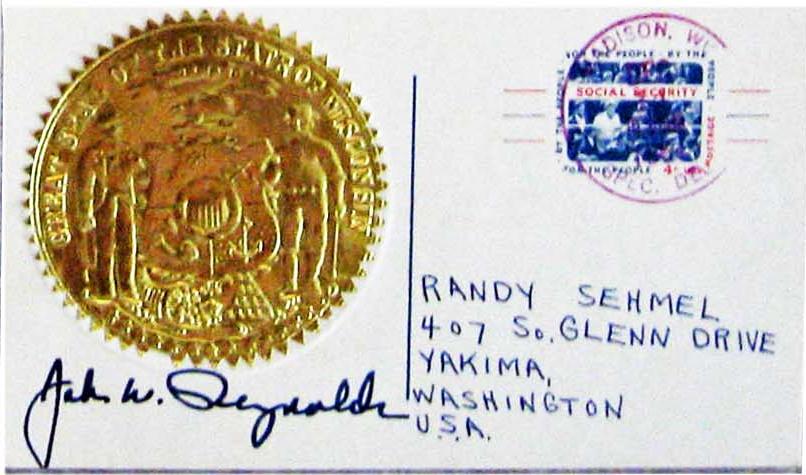 GREAT SEAL OF THE STATE OF WISCONSIN
John W. Reynolds
MADISON, WI
SPEC. DE
FOR THE PEOPLE · BY THE
PEOPLE
SOCIAL SECURITY
BY THE PEOPLE
FOR THE PEOPLE 4¢
POSTAGE
RANDY SEHMEL
407 So. GLENN DRIVE
YAKIMA,
WASHINGTON
U.S.A.